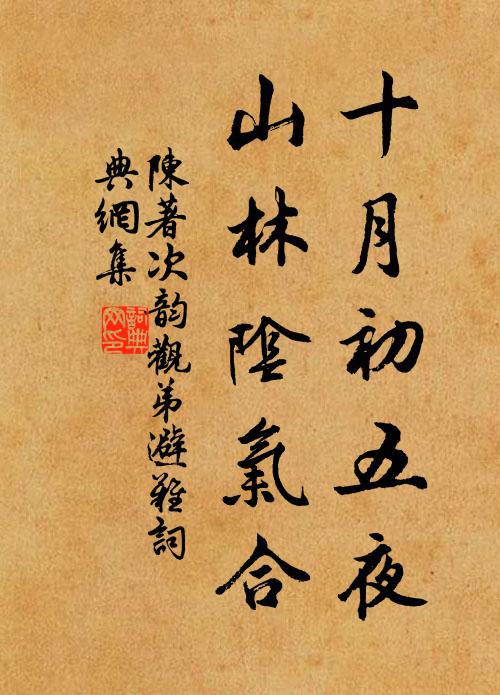 十月初五夜
山林陰氣合
陳著次韵觀弟避難詞
典網集
詞典网印